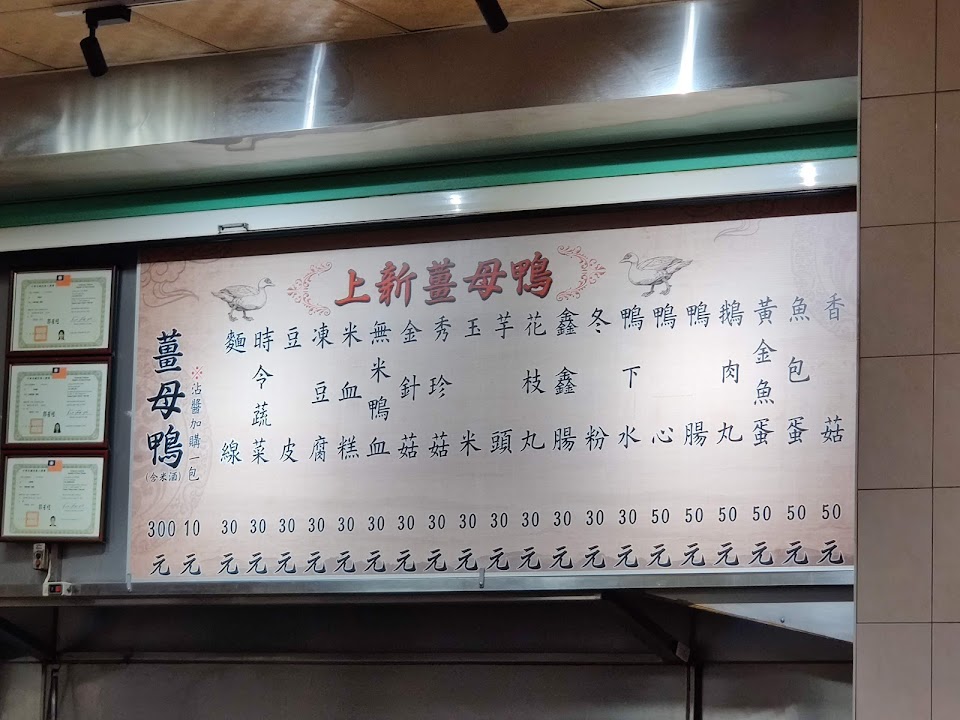 上新薑母鴨
薑母鴨(含米酒) 300元
※沾醬加購一包 10元
麵線 30元
時令蔬菜 30元
豆皮 30元
凍豆腐 30元
米血糕 30元
無米鴨血 30元
金針菇 30元
秀珍菇 30元
玉米 30元
芋頭 30元
花枝丸 30元
鑫鑫腸 30元
冬粉 30元
鴨下水 30元
鴨心 50元
鴨腸 50元
鵝肉丸 50元
黃金魚蛋 50元
魚包蛋 50元
香菇 50元